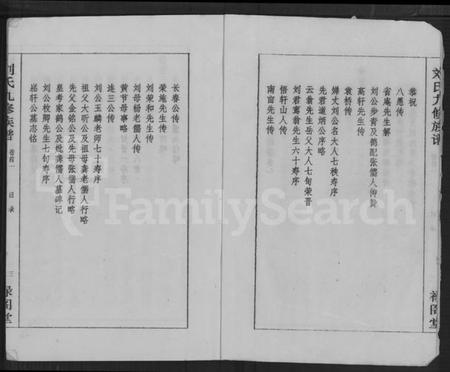 刘氏九修族谱
恭祝
八愿传
省庵先生解
刘公步青及德配张孺人传赞
高轩先生传
袁桥传
婶丈刘公名大人七秩寿序
先君道炳公序略
云翁先生岳父大人七旬荣晋
刘君蹇斋先生六十寿序
悟轩山人传
南亩先生传
禄阁堂
FamilySearch
长春公传
荣施先生传
刘荣和先生传
刘母杨老孺人传
黄节母事略
连三公传
刘公玉麟老师七十寿序
祖父大昕公及祖母龚老孺人行略
先父金铭公及先母张孺人行略
皇考家鹤公及妣龚孺人墓碑记
刘公敉卿先生七旬寿序
嵒轩公墓志铭
刘氏九修族谱
卷首一
目录
三
禄阁堂